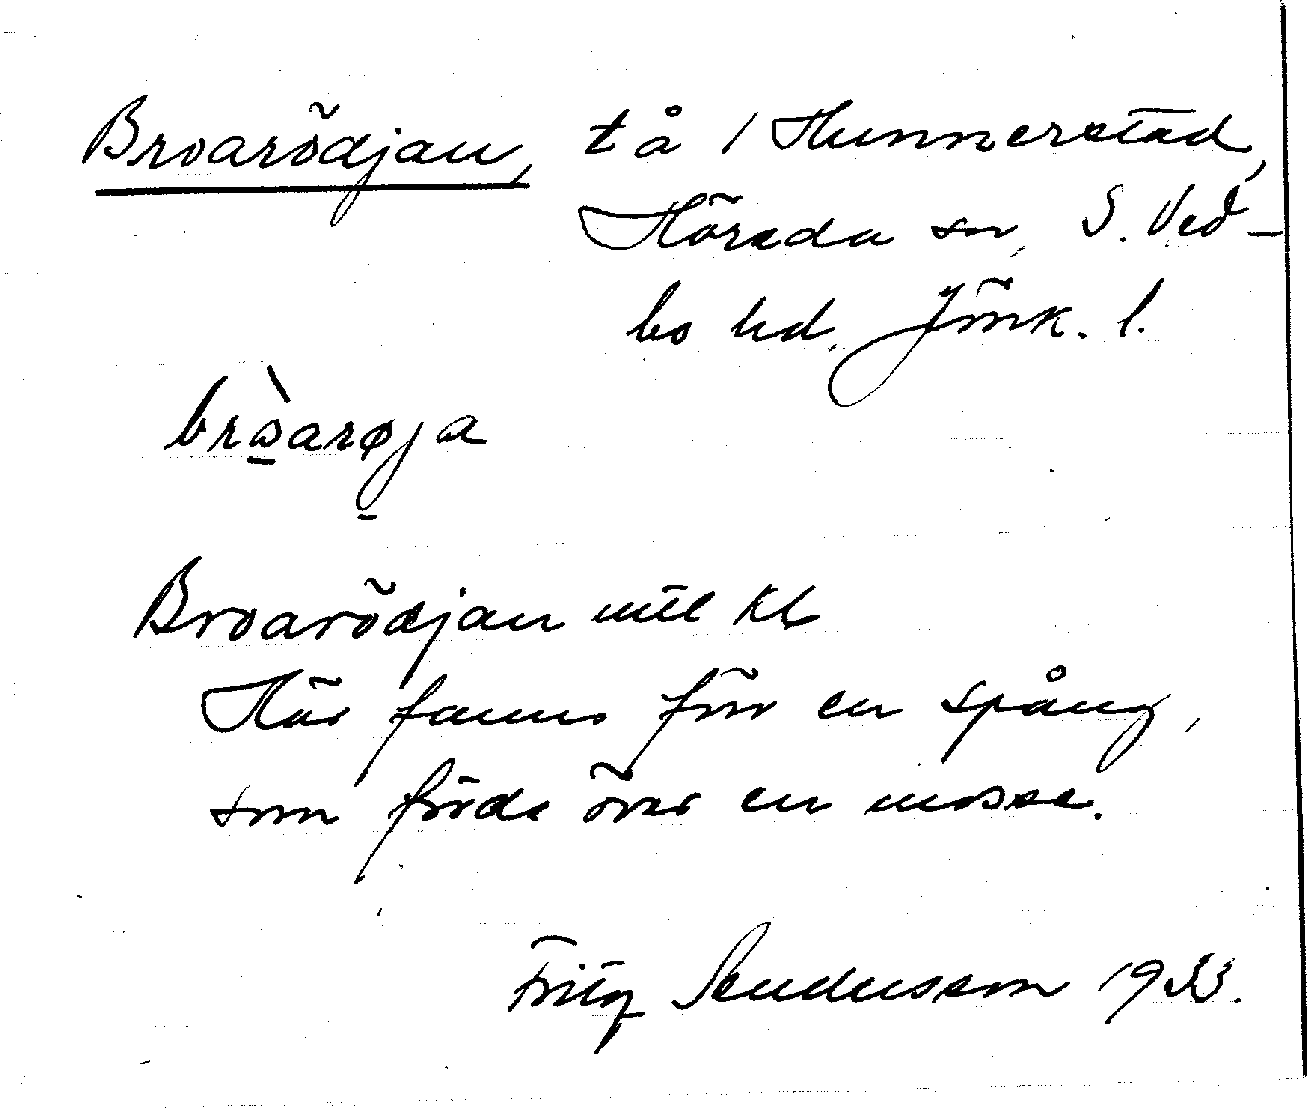 Broarödjan, tå / Hunnerstad,
Hörsda sn, S. Ved-
bo hd. Jönk. l.
brɷ̀arøja
Broarödjan mtl Kb
Här fanns förr en spång,
som förde över en mosse.
Fritz 1933.